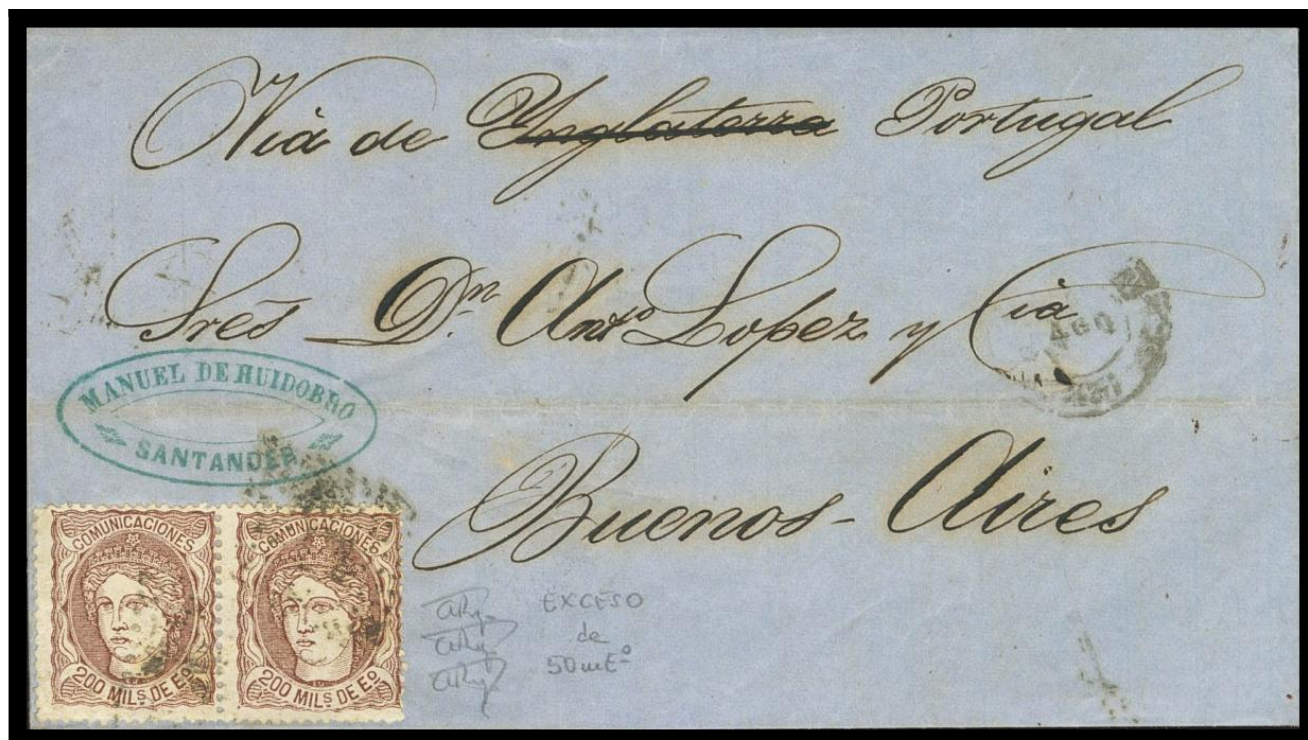 Viá de Ynglaterra Portugal
Sres Dn Anto Lopez y Cia
AGO
MANUEL DE HUIDOBRO
SANTANDER
Buenos-Aires
COMUNICACIONES
200 MILS DE Eo
COMUNICACIONES
200 MILS DE Eo
EXCESO
de
50 mEo